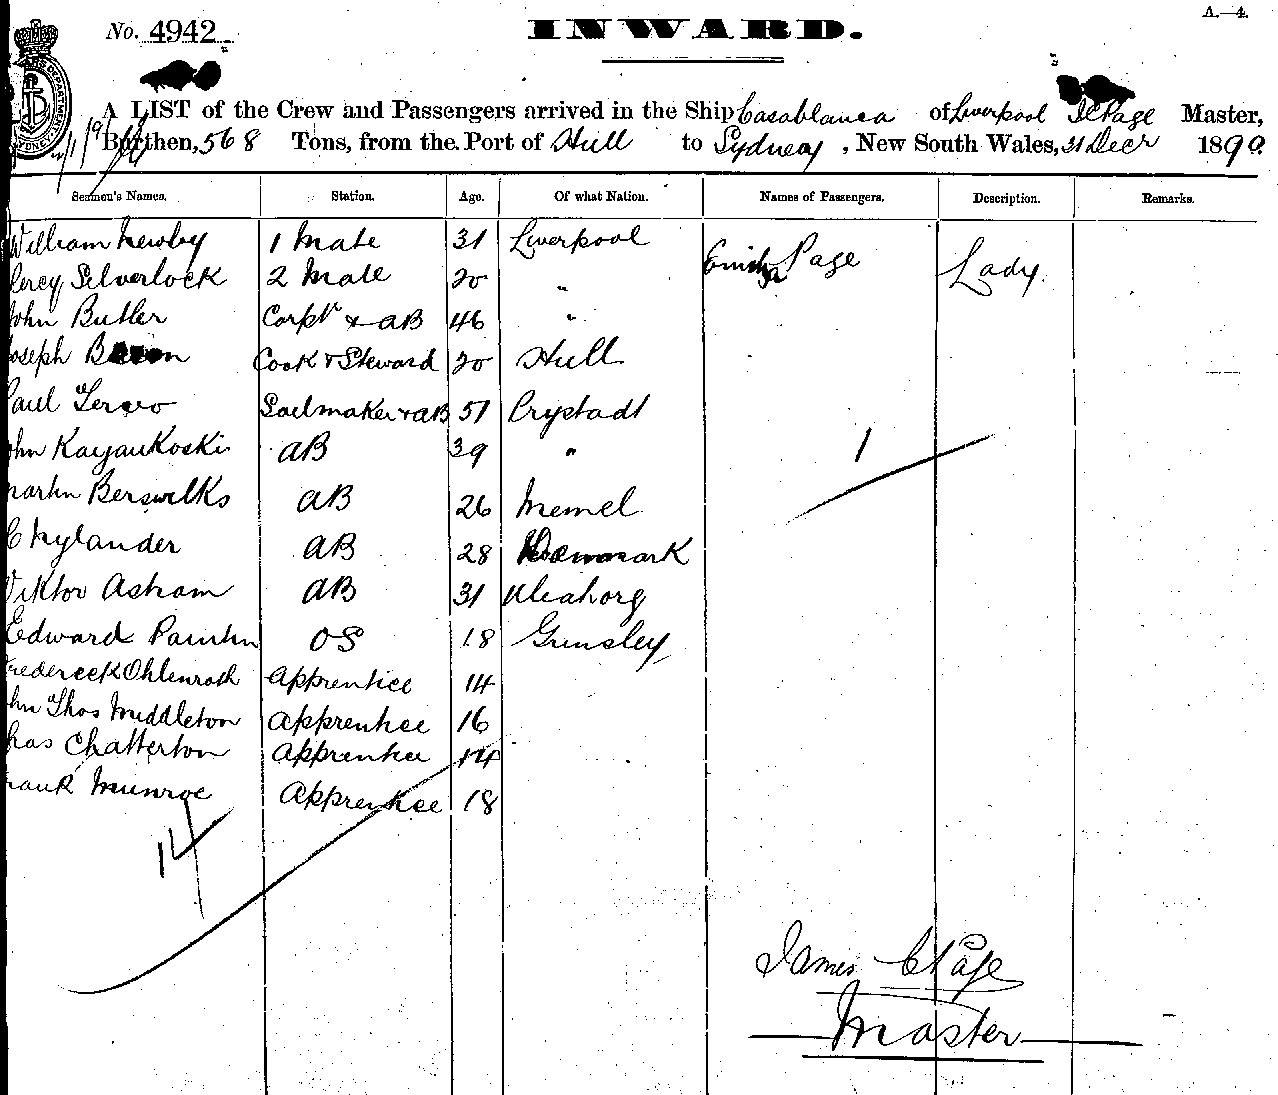 No. 4942
INWARD.
A.—4.
A LIST of the Crew and Passengers arrived in the Ship Casablanca of Liverpool Page Master,
Burthen, 568 Tons, from the Port of Hull to Sydney, New South Wales, 31 Decr 1890
Seamen's Names. Station. Age. Of what Nation. Names of Passengers. Description. Remarks.
William Newby 1 Mate 31 Liverpool Page Lady
Percy Silverlock 2 Mate 20 "
John Butler Corptr & AB 46 "
Joseph Cook & Steward 20 Hull
Paul Sailmaker & AB 51 Crystadt
John AB 39 "
Martin AB 26 Memel
C Nylander AB 28 Denmark
Viktor AB 31 Uleaborg
Edward OS 18 Grimsley
Fredereck Ohlenroth Apprentice 14
John Thos Middleton Apprentice 16
Chas Chatterton Apprentice 14
Frank Munroe Apprentice 18
14
1
James Page
Master